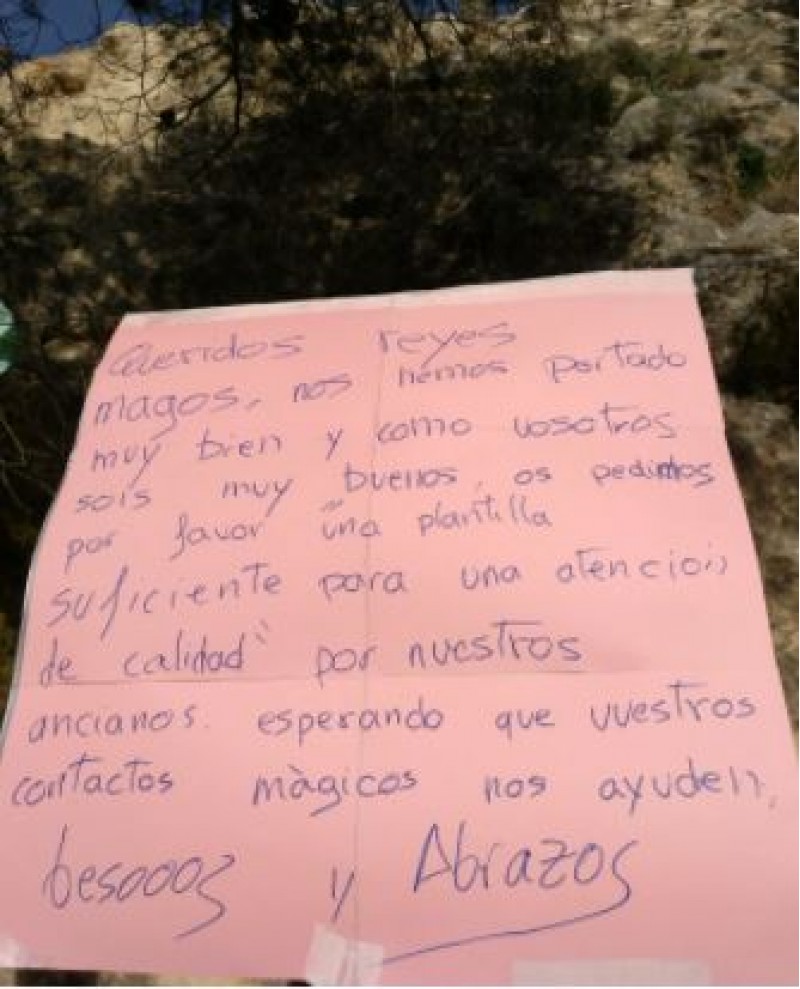 Queridos reyes
magos, nos hemos portado
muy bien y como vosotros
sois muy buenos, os pedimos
por favor "una plantilla
suficiente para una atención
de calidad" por nuestros
ancianos. esperando que vuestros
contactos màgicos nos ayuden,
besooos y Abrazos